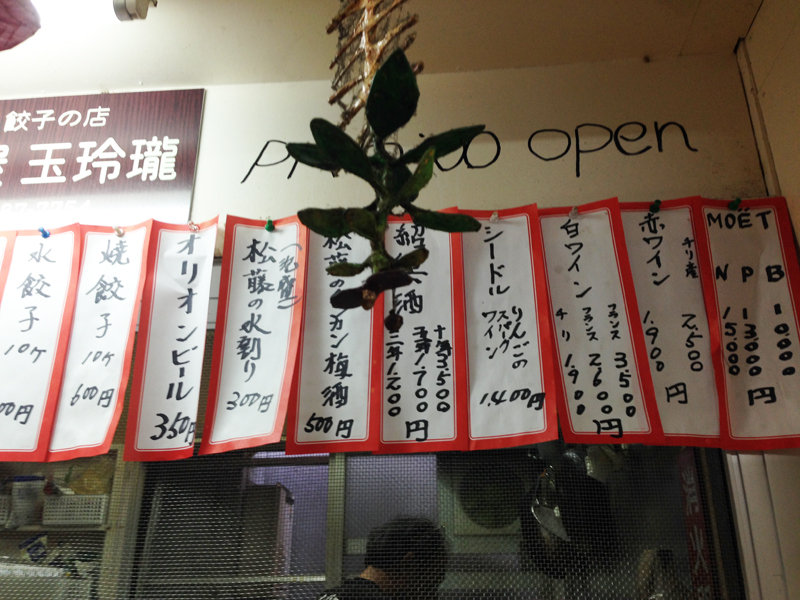 餃子の店
玉玲瓏
open
水餃子
10ヶ
00円
焼餃子
10ヶ
600円
オリオンビール
350円
松藤の水割り
300円
松藤の
梅酒
500円
紹
酒
十年 3,500
五年 1,700
三年 1,200
円
シードル
りんごの
スパークワイン
1,400円
白ワイン
フランス 3500
フランス 2600
チリ 1,900
円
赤ワイン
チリ産
2,500
1,900
円
MOËT
N 15,000
P 13,000
B 10,000
円